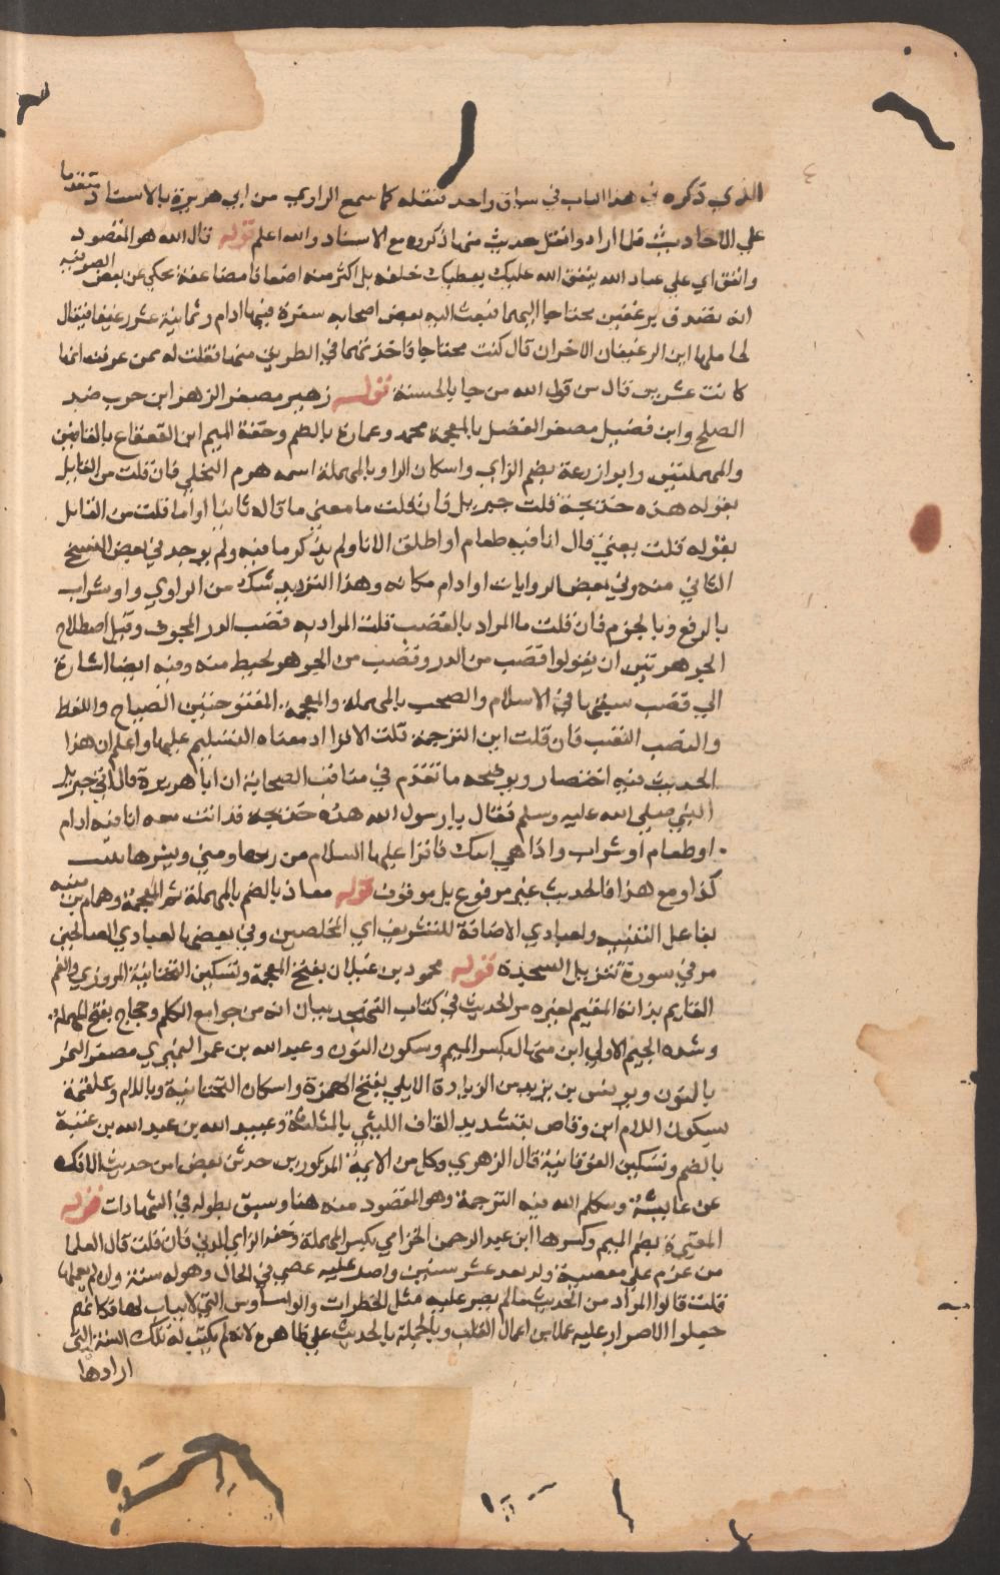 الذي ذكره في هذا الباب في سياق واحد فنقله كما سمع الراوي من ابي هريرة بالاسناد متقدما
علي الاحاديث فلما اراد وانقل حديث منها ذكروه مع الاسناد والله اعلم قوله قال الله هو المقصود
وانفق اي علي عباد الله ينفق الله عليك يعطيك خلفه بل اكثر منه اضعافا مضاعفة يحكي عن بعض الصوفية
انه تصدق برغيفين محتاجا اليهما فبعث اليه بعض اصحابه سفرة فيها ادام وثمانية عشر رغيفا فقال
لحاملها اين الرغيفان الاخران قال كنت محتاجا فاخذتهما في الطريق منها فقلت له بمن عرفت انها
كانت عشرين قال من قول الله من جا بالحسنة قوله زهير مصغر الزهر ابن حرب ضد
الصلح وابن فضيل مصغر الفضل بالمعجمة محمد وعمارة بالضم وخفة الميم ابن القعقاع بالقافين
والمهملتين وابو زرعة بضم الزاي واسكان الراو بالمهملة اسمه هرم البجلي فان قلت من القايل
بقوله هذه خديجة قلت جبريل فان قلت ما معني ما قاله ثانيا اواما قلت من القايل
بقوله قلت يعني قال انا فيه طعام او اطلق الانا ولم يذكر ما فيه ولم يوجد في بعض النسخ
الثاني منه وفي بعض الروايات او ادام مكانه وهذا الترديد شك من الراوي واو شراب
بالرفع وبالجزم فان قلت ما المراد بالقصب قلت المراد به قصب الدر المجوف وقيل اصطلاح
الجوهريين ان يقولوا قصب من الدر وقصب من الجوهر لخيط منه وفيه ايضا اشارة
الي قصب سبقها في الاسلام والصخب بالمهملة والمعجمة المفتوحتين الصياح واللغط
والنصب التعب فان قلت اين الترجمة قلت الاقرا اد معناه التسليم عليها واعلم ان هذا
الحديث فيه اختصار ويوضحه ما تقدم في مناقب الصحابة ان ابا هريرة قال اتي جبريل
النبي صلي الله عليه وسلم فقال يا رسول الله هذه خديجة قد اتت معه انا فيه ادام
او طعام او شراب واذا هي اتتك فاقرا عليها السلام من ربها ومني وبشرها ببيت
كذا ومع هذا فالحديث غير مرفوع بل موقوف قوله معاذ بالضم بالمهملة ثم المعجمة وهمام بن منبه
بفاعل التنبيه ولعبادي الاضافة للتشريف اي المخلصين وفي بعضها لعبادي الصالحين
مر في سورة تنزيل السجدة قوله محمود بن غيلان بفتح المعجمة وتسكين التحتانية المروزي والقيم
القايم بذاته المقيم لغيره مر الحديث في كتاب التهجد بيان انه من جوامع الكلم وحجاج بفتح المهملة
وشدة الجيم الاولي ابن منهال بكسر الميم وسكون النون وعبد الله بن عمر النميري مصغر النمر
بالنون ويونس بن يزيد من الزيادة الايلي بفتح الهمزة واسكان التحتانية وباللام وعلقمة
بسكون اللام ابن وقاص بتشديد القاف الليثي بالمثلثة وعبيد الله بن عبد الله بن عتبة
بالضم وتسكين الفوقانية قال الزهري وكل من الايمة المذكورين حدثني بعضا من حديث الافك
عن عايشة وسكلم الله فيه الترجمة وهو المقصود منه هنا وسبق بطوله في الشهادات قوله
المغيرة بضم الميم وكسرها ابن عبد الرحمن الحزامي بكسر المهملة وخفة الزاي المدني فان قلت قال العلما
من عزم علي معصية ولو بعد عشر سنين واصر عليه عصي في الحال وهو له سنة وان لم يعملها
قلت قالوا المراد من الحديث ما لم يصر عليه مثل الخطرات والوساوس التي لا ثبات لها فكانهم
جعلوا الاصرار عليه عملا من اعمال القلب وبالجملة بالحديث علي ظاهره لانه لم يكتب له تلك السيئة التي
ارادها